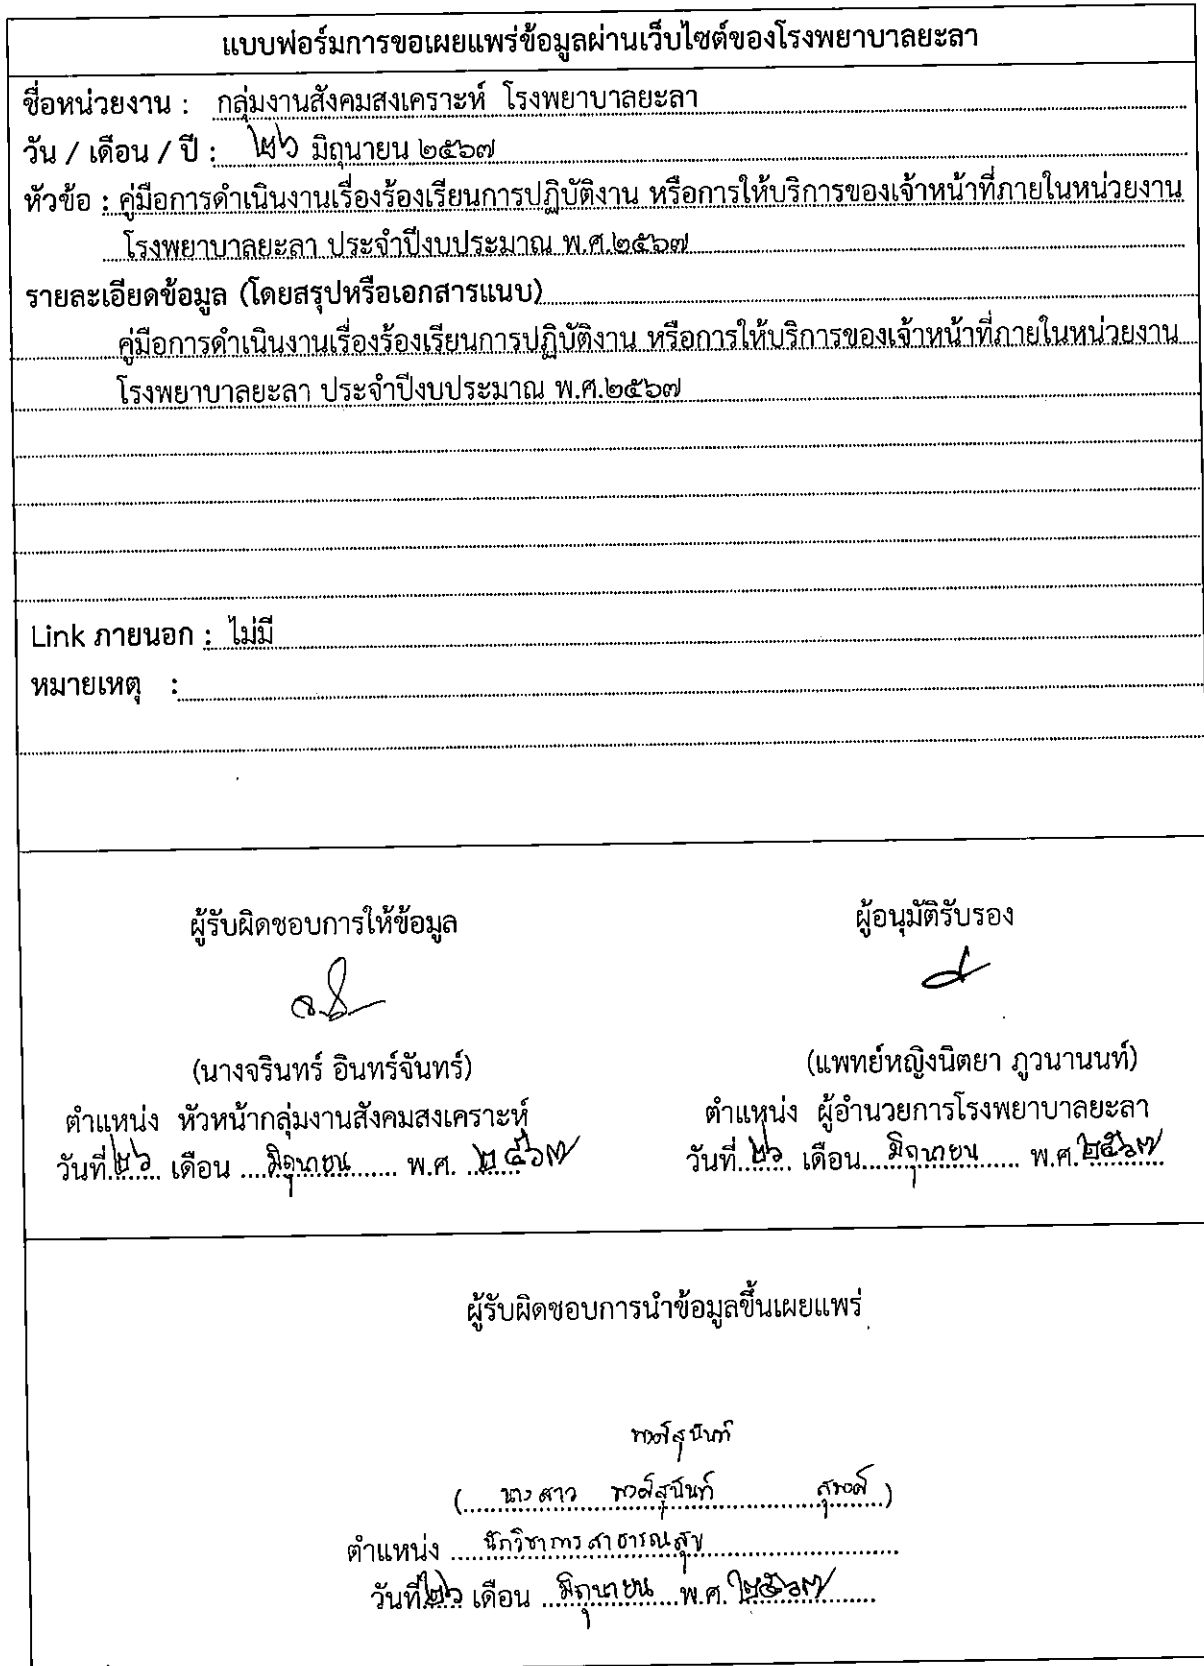 แบบฟอร์มการขอเผยแพร่ข้อมูลผ่านเว็บไซต์ของโรงพยาบาลยะลา
ชื่อหน่วยงาน : กลุ่มงานสังคมสงเคราะห์ โรงพยาบาลยะลา
วัน / เดือน / ปี : ๒๖ มิถุนายน ๒๕๖๗
หัวข้อ : คู่มือการดำเนินงานเรื่องร้องเรียนการปฏิบัติงาน หรือการให้บริการของเจ้าหน้าที่ภายในหน่วยงาน
โรงพยาบาลยะลา ประจำปีงบประมาณ พ.ศ.๒๕๖๗
รายละเอียดข้อมูล (โดยสรุปหรือเอกสารแนบ)
คู่มือการดำเนินงานเรื่องร้องเรียนการปฏิบัติงาน หรือการให้บริการของเจ้าหน้าที่ภายในหน่วยงาน
โรงพยาบาลยะลา ประจำปีงบประมาณ พ.ศ.๒๕๖๗
Link ภายนอก : ไม่มี
หมายเหตุ :
ผู้รับผิดชอบการให้ข้อมูล ผู้อนุมัติรับรอง
(นางจรินทร์ อินทร์จันทร์) (แพทย์หญิงนิตยา ภูวนานนท์)
ตำแหน่ง หัวหน้ากลุ่มงานสังคมสงเคราะห์ ตำแหน่ง ผู้อำนวยการโรงพยาบาลยะลา
วันที่ ๒๖ เดือน มิถุนายน พ.ศ. ๒๕๖๗ วันที่ ๒๖ เดือน มิถุนายน พ.ศ. ๒๕๖๗
ผู้รับผิดชอบการนำข้อมูลขึ้นเผยแพร่
( นางสาว )
ตำแหน่ง นักวิชาการสาธารณสุข
วันที่ ๒๖ เดือน มิถุนายน พ.ศ. ๒๕๖๗